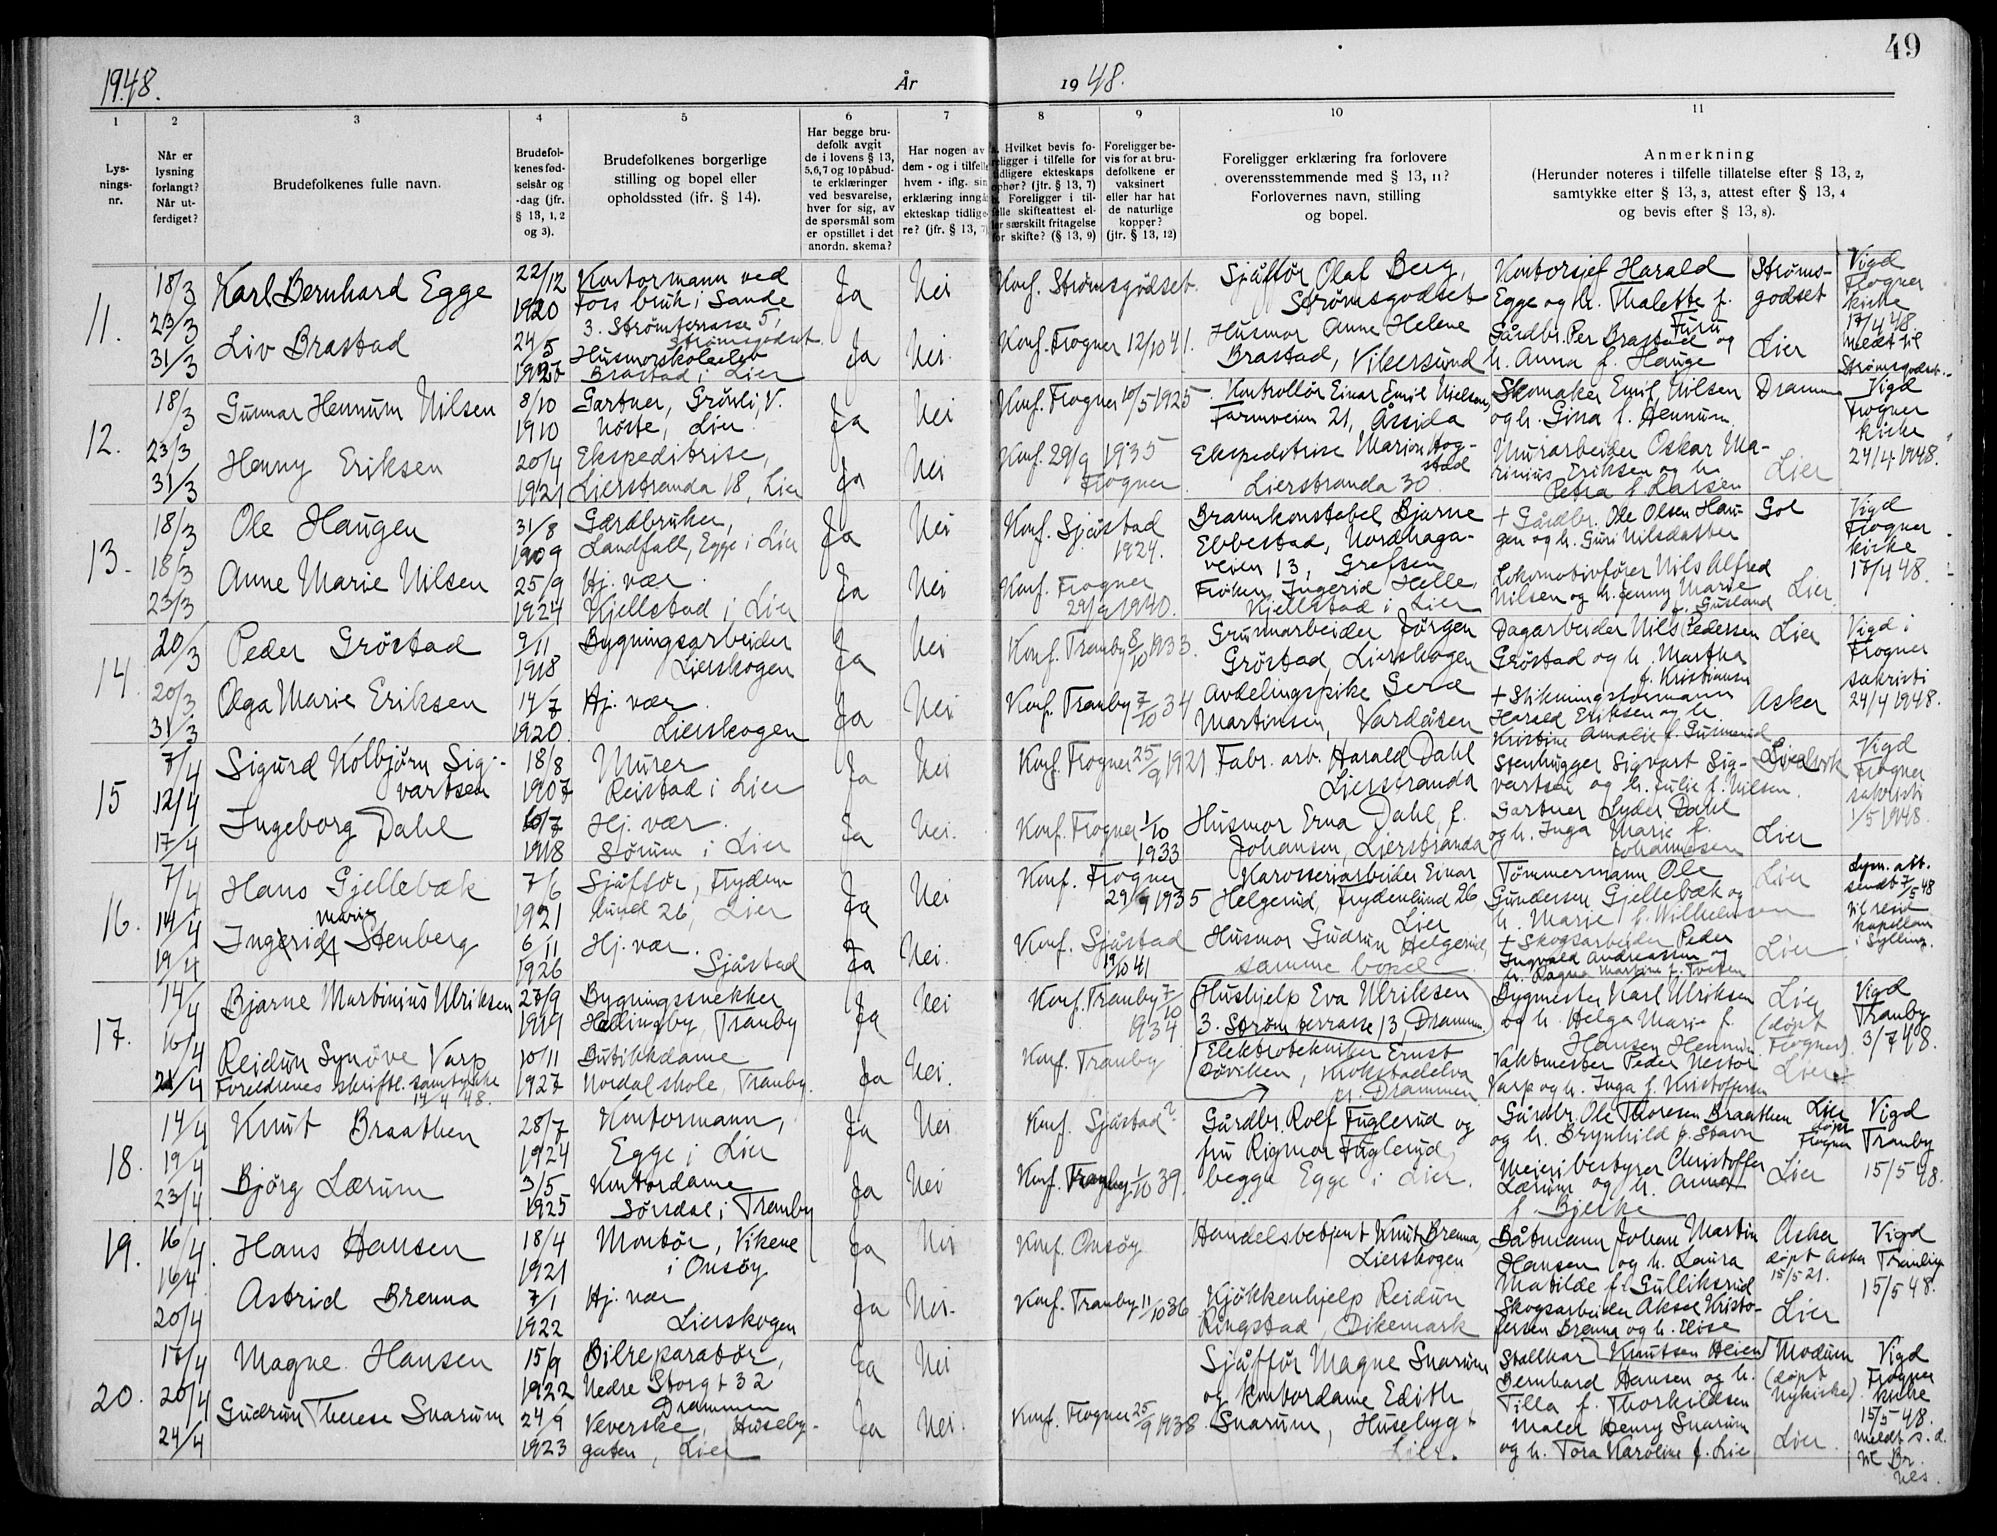 49
1948.
År
19 48.
1
2
3
4
5
6
7
8
9
10
11
Lys-
nings-
nr.
Når er
lysning
forlangt?
Når ut-
ferdiget?
Brudefolkenes fulle navn.
Brudefol-
kenes fød-
selsår og
-dag (jfr.
§ 13, 1, 2
og 3).
Brudefolkenes borgerlige
stilling og bopel eller
opholdssted (ifr. § 14).
Har begge bru-
defolk avgit
de i lovens § 13,
5,6,7 og 10 påbud-
te erklæringer
ved besvarelse,
hver for sig, av
de spørsmål som
er opstillet i det
anordn. skema?
Har nogen av
dem - og i tilfelle
hvem - iflg. sin
erklæring inngå
ekteskap tidlige-
re? (jfr. § 13, 7)
Hvilket bevis fo-
religger i tilfelle for
tidligere ekteskaps
ophør? (jfr. § 13, 7)
Foreligger i til-
felle skifteattest el-
ler særskilt fritagelse
for skifte? (§ 13, 9)
Foreligger be-
vis for at bru-
defolkene er
vaksinert
eller har hat
de naturlige
kopper?
(jfr. § 13, 12)
Foreligger erklæring fra forlovere
overensstemmende med § 13, 11?
Forlovernes navn, stilling
og bopel.
Anmerkning
(Herunder noteres i tilfelle tillatelse efter § 13, 2,
samtykke etter § 13, 3, attest efter § 13, 4
og bevis efter § 13, 8).
11.
18/3
23/3
31/3
Karl Bernhard Egge
22/12
1920
Kontormann ved
Fors bruk i Sande
3. Strømterrasse 5,
Strømsgodset
Ja
Nei
Konf. Strømsgodset.
Sjåffør Olaf Berg,
Strømsgodset
Kontorsjef Harald
Egge og h. Thalette f.
Furu
Strøms-
godset
Vigd
Frogner
kirke
17/4 48.
meldt til
Strømsgodset.
Liv Brastad
24/5
Husmorskoleelev
Brastad i Lier
Ja
Nei.
Konf. Frogner 12/10 41.
Husmor Anne Helene
Brastad, Vikersund
Gårdbr. Per Brastad og
h. Anna f. Hauge
Lier
12.
18/3
23/3
31/3
Gunnar Hennum Nilsen
8/10
1910
Gartner, Grønli, V.
Nøste, Lier
Ja
Nei
Konf. Frogner 10/5 1925.
Kontrollør Einar Emil Nielsen,
Tormveien 21, Åssida
Skomaker Emil Nilsen
og h. Gina f. Hennum
Dramm
Vigd
Frogner
kirke
24/4 1948.
Henny Eriksen
20/4
1921
Ekspeditrise,
Lierstranda 18, Lier
Ja
Nei
Konf. 29/9 1935
Frogner
Ekspeditrise Marion Hog-
stad
Lierstranda 30
Murarbeider Oskar Ma-
rinius Eriksen og h.
Petra f. Larsen
Lier
13.
18/3
18/3
23/3
Ole Haugen
31/8
1909
Gårdbruker,
Landfall, Egge i Lier
Ja
Nei
Konf. Sjåstad
1924.
Brannkonstabel Bjarne
Ebbestad, Nordhaga-
veien 13, Grefsen
+ Gårdbr. Ole Olsen Hau-
gen og h. Guri Nilsdatter
Gol
Vigd
Frogner
kirke
17/4 48.
Anne Marie Nilsen
25/9
1924
Hj. vær.
Kjellstad i Lier
Ja
Nei
Konf. Frogner
29/9 1940.
Frøken Ingerid Helle,
Kjellstad i Lier
Lokomotivfører Nils Alfred
Nilsen og h. Jenny Marie
f. Gusland
Lier.
14.
20/3
20/3
31/3
Peder Grøstad
9/11
1918
Bygningsarbeider
Lierskogen
Ja
Nei
Konf. Tranby 8/10 1933.
Grunnarbeider Jørgen
Grøstad, Lierskogen
Dagarbeider Nils Pedersen
Grøstad og h. Martha
f. Kristiansen
Lier
Vigd i
Frogner
sakristi
24/4 1948.
Olga Marie Eriksen
14/7
1920.
Hj. vær
Lierskogen
Ja
Nei
Konf. Tranby 7/10 34
Avdelingspike Gerd
Martinsen, Vardåsen
+ Stikningsformann
Harald Eriksen og h.
Kristine Amalie f. Gusmerud
Asker
15
7/4
12/4
17/4
Sigurd Kolbjørn Sig-
vartsen
18/8
1907
Murer
Reistad i Lier
Ja
Nei
Konf. Frogner 25/9 1921
Fabr. arb. Harald Dahl
Lierstranda
Stenhugger Sigvart Sig-
vartsen og h. Julie f. Nilsen.
Vigd
Frogner
sakristi
1/5 1948.
Ingeborg Dahl
1918
Hj. vær.
Sørum i Lier
Ja
Nei.
Konf. Frogner 1/10
1933
Husmor Erna Dahl, f.
Johansen, Lierstranda
Gartner Lyder Dahl
og h. Inga Marie f.
Johannesen
Lier
16.
7/4
14/4
19/4
Hans Gjellebæk
7/6
1921
Sjåffør, Fryden-
lund 26, Lier
Ja
Nei
Konf. Frogner
29/9 1935
Karosseriarbeider Einar
Helgerud, Frydenlund 26
Lier
Tømmermann Ole
Gundersen Gjellebæk og
h. Marie f. Wilhelmsen
Lier
Lysn. att.
sendt 7/5 48
til resid.
kapellan
i Sylling.
Marie
Ingerid Stenberg
6/11
1926
Hj. vær.
Sjåstad
Ja
Nei.
Konf. Sjåstad
10 41
Husmor Gudrun Helgerud,
samme bopel
+ Skogsarbeider Peder
Ingvald Andreassen og
h. Dagna Martine f. Tveten
Lier
17.
14/4
16/4
21/4
Bjarne Martinius Ulriksen
1919
Bygningssnekker
Hallingby, Tranby
Ja
Nei
Konf. Tranby 7/10
1934.
Hushjelp Eva Ulriksen
3. Strøm terrasse 13 Dramm.
Bygmester Karl Ulriksen
og h. Helga Marie f.
Hansen Hennum
Lier
(døpt
Frogner)
Vigd
Tranby
3/7 48.
Reidun Synøve Varp
Foreldrenes skriftl. samtykke
14/4 48.
10/11
1927
Butikkdame
Nordal skole, Tranby.
Ja
Nei.
Konf. Tranby
Elektrotekniker Ernst
Døviken, Krokstadelva
pr. Drammen
Vaktmester Peder Nestor
Varp og h. Inga f. Kristoffersen
Lier
18.
14/4
19/4
23/4
Knut Braathen
28/7
1924
Kontormann,
Egge i Lier
Ja
Nei.
Konf. Sjåstad?
Gårdbr. Rolf Fuglerud og
fru Rigmor Fuglerud,
begge Egge i Lier.
Gårdbr. Ole Thoresen Braathen
og h. Brynhild f. Stavn
Lier
døpt
Frogner
Vigd
Tranby
15/5 48.
Bjørg Lærum
3/5
1925
Kontordame
Sørsdal i Tranby
Ja
Nei
Konf. Tranby 1/10 39.
Meieribestyrer Christoffer
Lærum og h. Anna
f. Bjerke
Lier
19.
16/4
16/4
20/4
Hans Hansen
18/4
1921
Montør, Vikene
i Onsøy
Ja
Nei
Konf. Onsøy
Handelsbetjent Knut Brenna,
Lierskogen
Båtmann Johan Martin
Hansen og h. Laura
Matilde f. Gulliksrud
Asker
døpt Asker
15/5 21.
Vigd
Tranby
15/5 48.
Astrid Brenna
7/1
1922
Hj. vær
Lierskogen
Ja
Nei.
Konf. Tranby 11/10 36
Kjøkkenhjelp Reidun
Ringstad, Dikemark
Skogsarbeider Aksel Kristo-
fersen Brenna og h. Elise
Knutsen Heien
Lier
20.
20/4
24/4
Magne Hansen
15/9
1922
Bilreparatør,
Nedre Storgt 32
Drammen
Ja
Nei
Sjåffør Magne Snarum
og kontordame Edith
Snarum, Husebygt
Lier.
Stallkar
Bernhard Hansen og h.
Tilla f. Thorkildsen
Modum
(døpt
Nykirke)
Vigd
Frogner
kirke
15/5 48.
meldt s. d.
til Br.
nes.
Gudrun Therese Snarum
24/9
1923
Veverske, Huseby-
gaten, Lier
Ja
Nei.
Konf. Frogner 25/9 1938
Maler Henry Snarum
og h. Tora Karoline f. Lie
Lier.